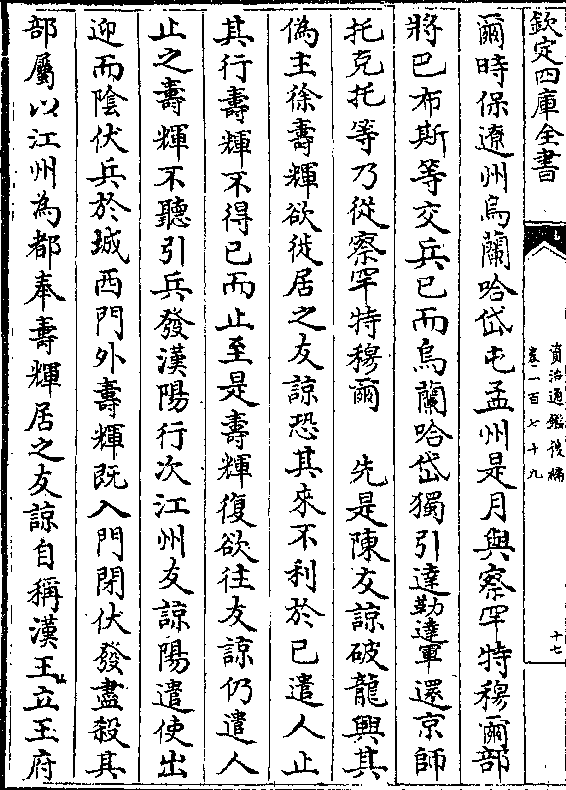 欽定四庫全書
資治通鑑後編
卷一百七十九
十七
爾時保遼州烏蘭哈岱屯孟州是月與察罕特穆爾部
將巴布斯等交兵已而烏蘭哈岱獨引達勒達軍還京師
托克托等乃從察罕特穆爾　先是陳友諒破龍興其
偽主徐壽輝欲徙居之友諒恐其來不利於已遣人止
其行壽輝不得已而止至是壽輝復欲往友諒仍遣人
止之壽輝不聽引兵發漢陽行次江州友諒陽遣使出
迎而陰伏兵於城西門外壽輝既入門閉伏發盡殺其
部屬以江州為都奉壽輝居之友諒自稱漢王立王府